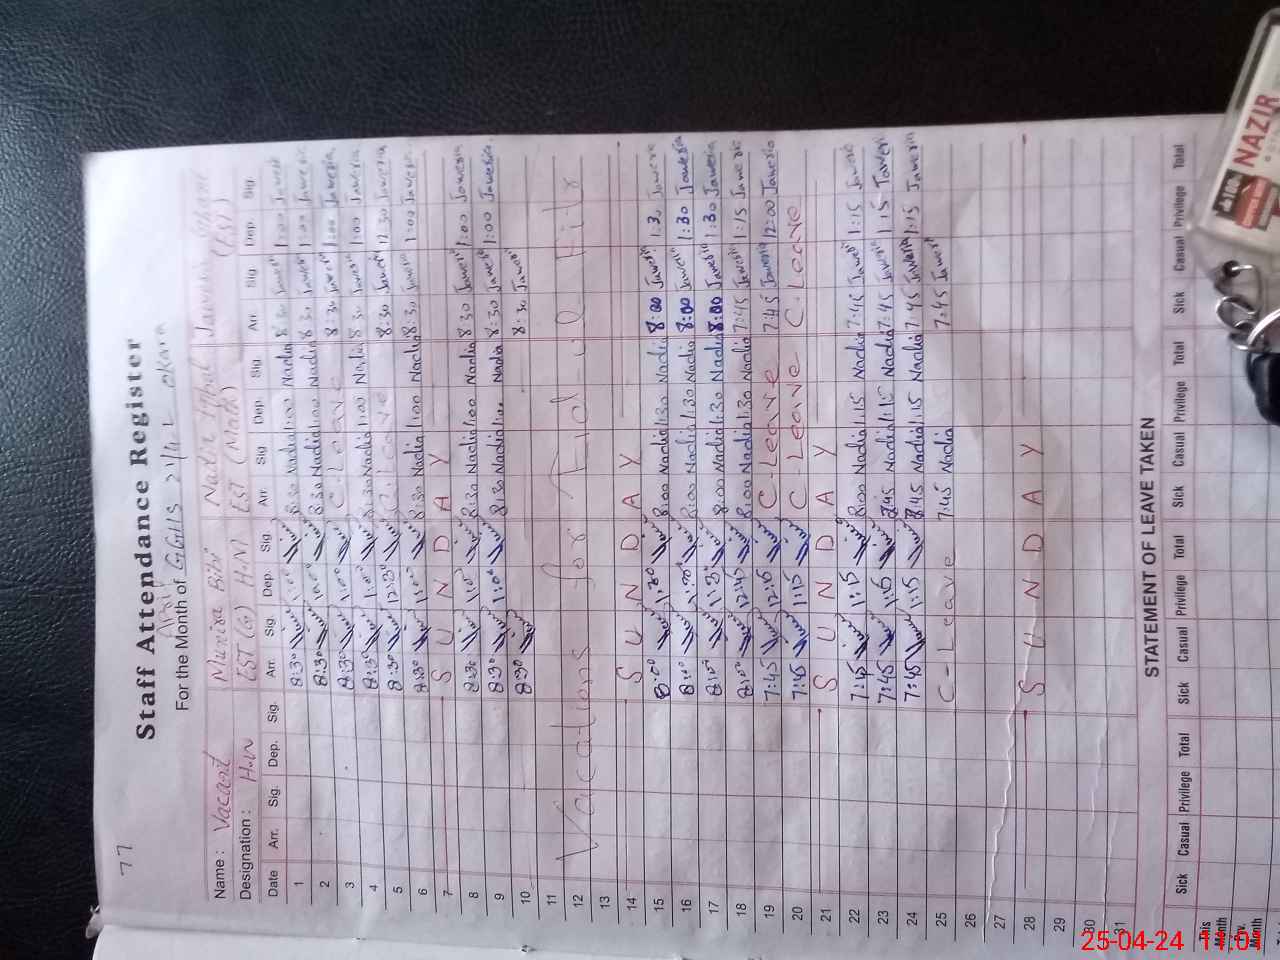 77
Staff Attendance Register
For the Month of April GGHS 21/4-L Okara
Name : Vacant Munira Bibi Nadia Iqbal Javeria
Designation : H.M EST (G) H.M EST (Math) (EST)
Date Arr. Sig. Dep. Sig. Arr. Sig. Dep. Sig. Arr. Sig Dep. Sig Arr. Sig Dep. Sig.
1 8:30 1:00 8:30 Nadia 1:00 Nadia 8:30 Jaweria 1:00 Jaweria
2 8:30 1:00 8:30 Nadia 1:00 Nadia 8:30 Jaweria 1:00 Jaweria
3 8:30 1:00 C. Leave 8:30 Jaweria 1:00 Jaweria
4 8:30 1:00 8:30 Nadia 1:00 Nadia 8:30 Jaweria 1:00 Jaweria
5 8:30 12:30 C. Leave 8:30 Jaweria 12:30 Jaweria
6 8:30 1:00 8:30 Nadia 1:00 Nadia 8:30 Jaweria 1:00 Jaweria
7 S U N D A Y
8 8:30 1:00 8:30 Nadia 1:00 Nadia 8:30 Jaweria 1:00 Jaweria
9 8:30 1:00 8:30 Nadia 1:00 Nadia 8:30 Jaweria 1:00 Jaweria
10 8:30 8:30 Jaweria
11
12 Vacations for Eid-ul Fitr
13
14 S U N D A Y
15 8:00 1:30 8:00 Nadia 1:30 Nadia 8:00 Jaweria 1:30 Jaweria
16 8:00 1:30 8:00 Nadia 1:30 Nadia 8:00 Jaweria 1:30 Jaweria
17 8:00 1:30 8:00 Nadia 1:30 Nadia 8:00 Jaweria 1:30 Jaweria
18 8:00 12:45 8:00 Nadia 1:30 Nadia 7:45 Jaweria 1:15 Jaweria
19 7:45 12:15 C-Leave 7:45 Jaweria 12:00 Jaweria
20 7:45 1:15 C Leave C. Leave
21 S U N D A Y
22 7:45 1:15 8:00 Nadia 1:15 Nadia 7:45 Jaweria 1:15 Jaweria
23 7:45 1:15 7:45 Nadia 1:15 Nadia 7:45 Jaweria 1:15 Jaweria
24 7:45 1:15 7:45 Nadia 1:15 Nadia 7:45 Jaweria 1:15 Jaweria
25 C-Leave 7:45 Nadia 7:45 Jaweria
26
27
28 S U N D A Y
29
30
31
STATEMENT OF LEAVE TAKEN
Sick Casual Privilege Total Sick Casual Privilege Total Sick Casual Privilege Total Sick Casual Privilege Total
This Month
Prv. Month
NAZIR
25-04-24 11:01